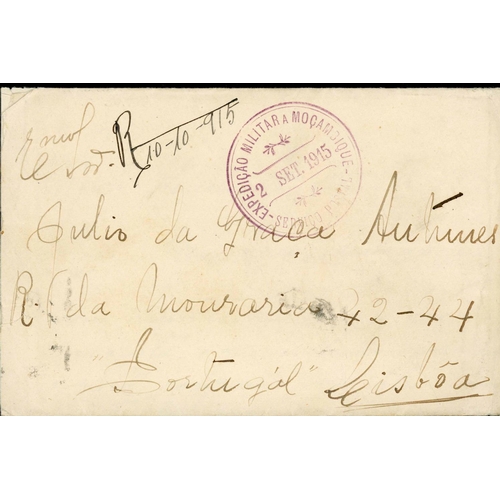 R 10-10-915
EXPEDIÇÃO MILITAR A MOÇAMBIQUE
2 SET. 1915
Julio da Graça Antunes
R. da Mouraria 42-44
"Portugal" Lisbôa